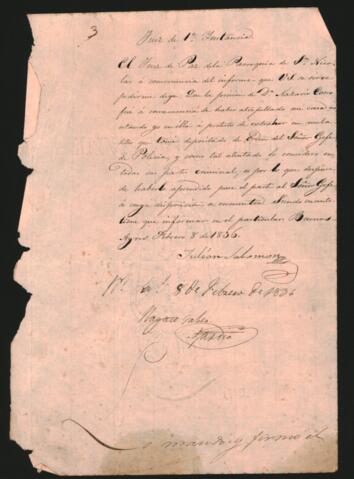 3
Juez de 1ª Instancia
El Juez de Paz de la Parroquia de Sn. Nico-
las a consecuencia del informe que VS se sirve
pedirme digo: Que la prision de Dn. Nazario
fue á consecuencia de haber atropellado mi casa
estando yo en ella á pretesto de
que tenia depositado de Orden del Señor Gefe
de Policia, y como tal atentado lo considero en
todas sus partes criminal, es por lo que despues
de haberlo aprendido pase el parte al Señor Gefe
á cuya disposicion se encuentra siendo cuanto
tiene que informar en el particular Buenos
Ayres Febrero 8 de 1836
Julian Salomon
8 de Febrero de 1836
Hagase saber
mando y firmo el